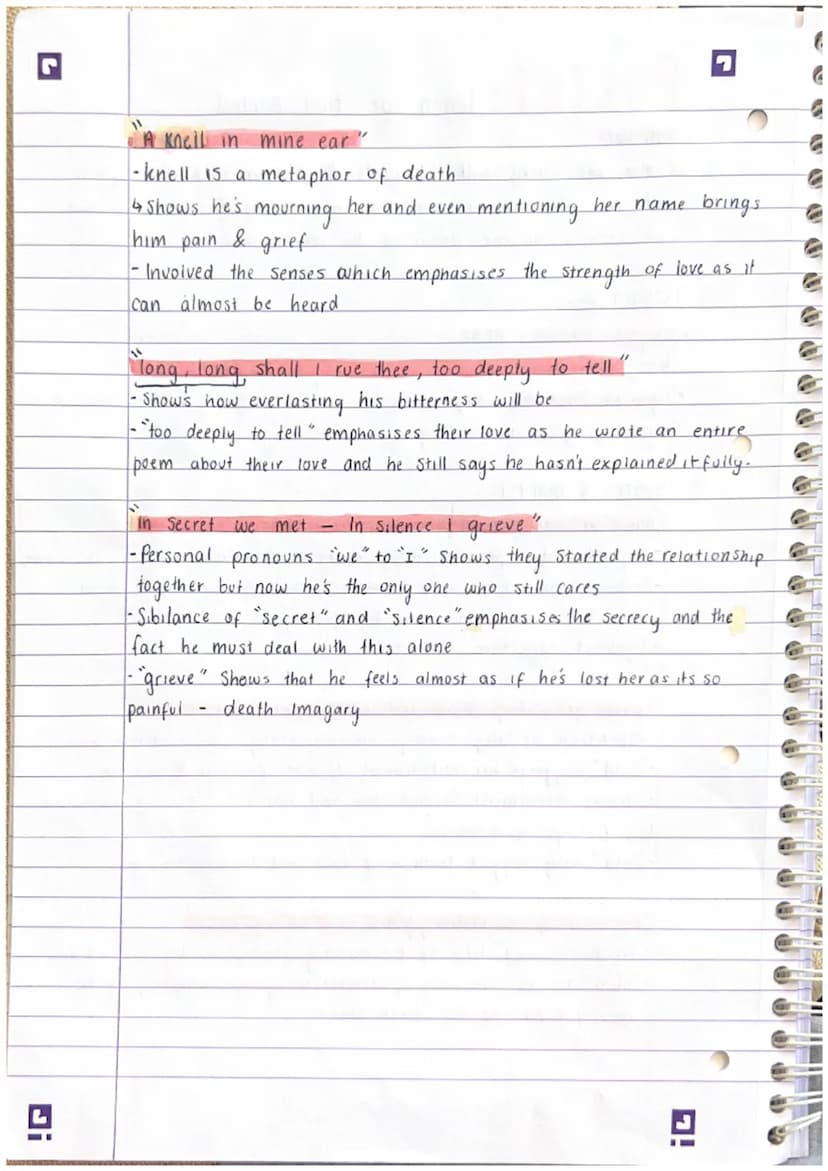 "A Knell in mine ear"
- knell is a metaphor of death
↳ Shows he's mourning her and even mentioning her name brings
him pain & grief
- Involved the senses which emphasises the strength of love as it
can almost be heard
"long, long shall I rue thee, too deeply to tell"
- Shows how everlasting his bitterness will be
- "too deeply to tell" emphasises their love as he wrote an entire
poem about their love and he still says he hasn't explained it fully.
"In Secret we met - In silence I grieve"
- Personal pronouns "we" to "I" Shows they Started the relationship
together but now he's the only one who still cares
- Sibilance of "secret" and "silence" emphasises the secrecy and the
fact he must deal with this alone
- "grieve" Shows that he feels almost as if he's lost her as its so
painful - death Imagary